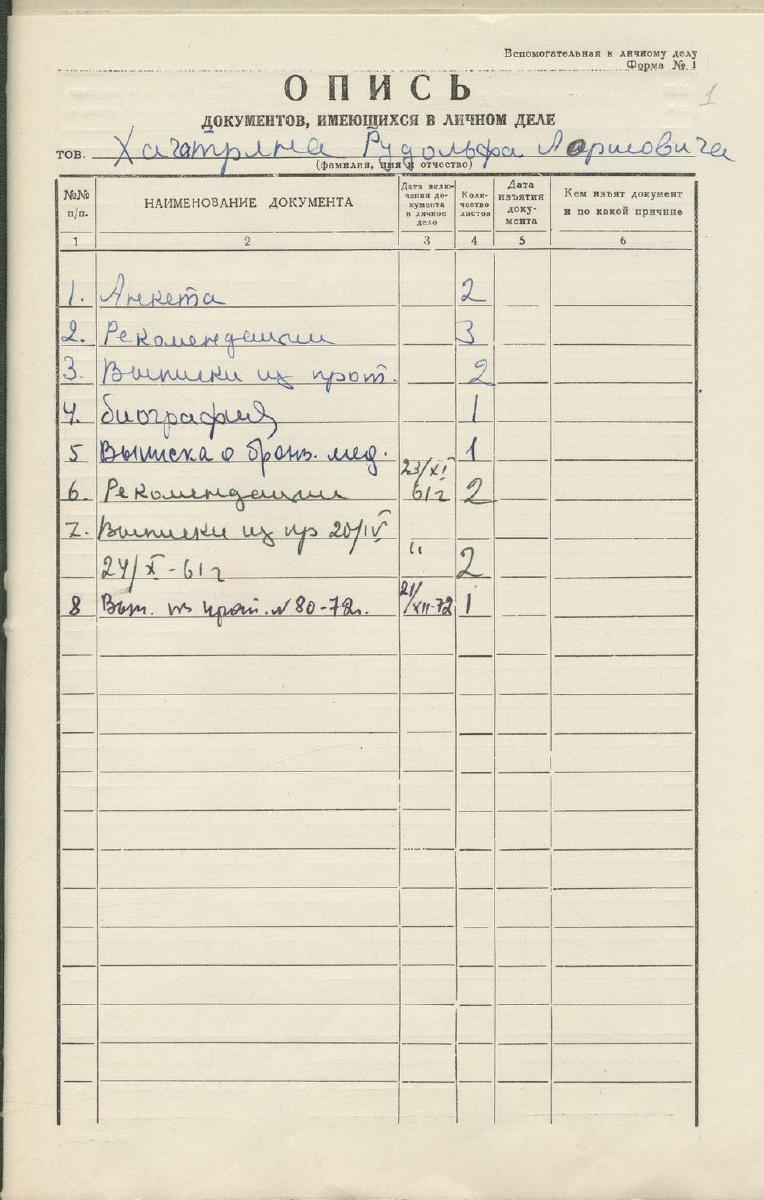 Вспомогательная к личному делу
Форма № 1
1
ОПИСЬ
ДОКУМЕНТОВ, ИМЕЮЩИХСЯ В ЛИЧНОМ ДЕЛЕ
тов. Хачатряна Рудольфа Лорисовича
(фамилия, имя и отчество)
№№ п/п. НАИМЕНОВАНИЕ ДОКУМЕНТА Дата вклю-чения до-кумента в личное дело Коли-чество листов Дата изъятия доку-мента Кем изъят документ и по какой причине
1 2 3 4 5 6
1. Анкета 2
2. Рекомендации 3
3. Выписки из прот. 2
4. биография 1
5 Выписка о бронз. мед. 1
6. Рекомендации 23/XI 61г 2
7. Выписки из пр 20/IV
24/X-61г " 2
8 Вып. из прот. № 80-72г. 21/XII-72 1